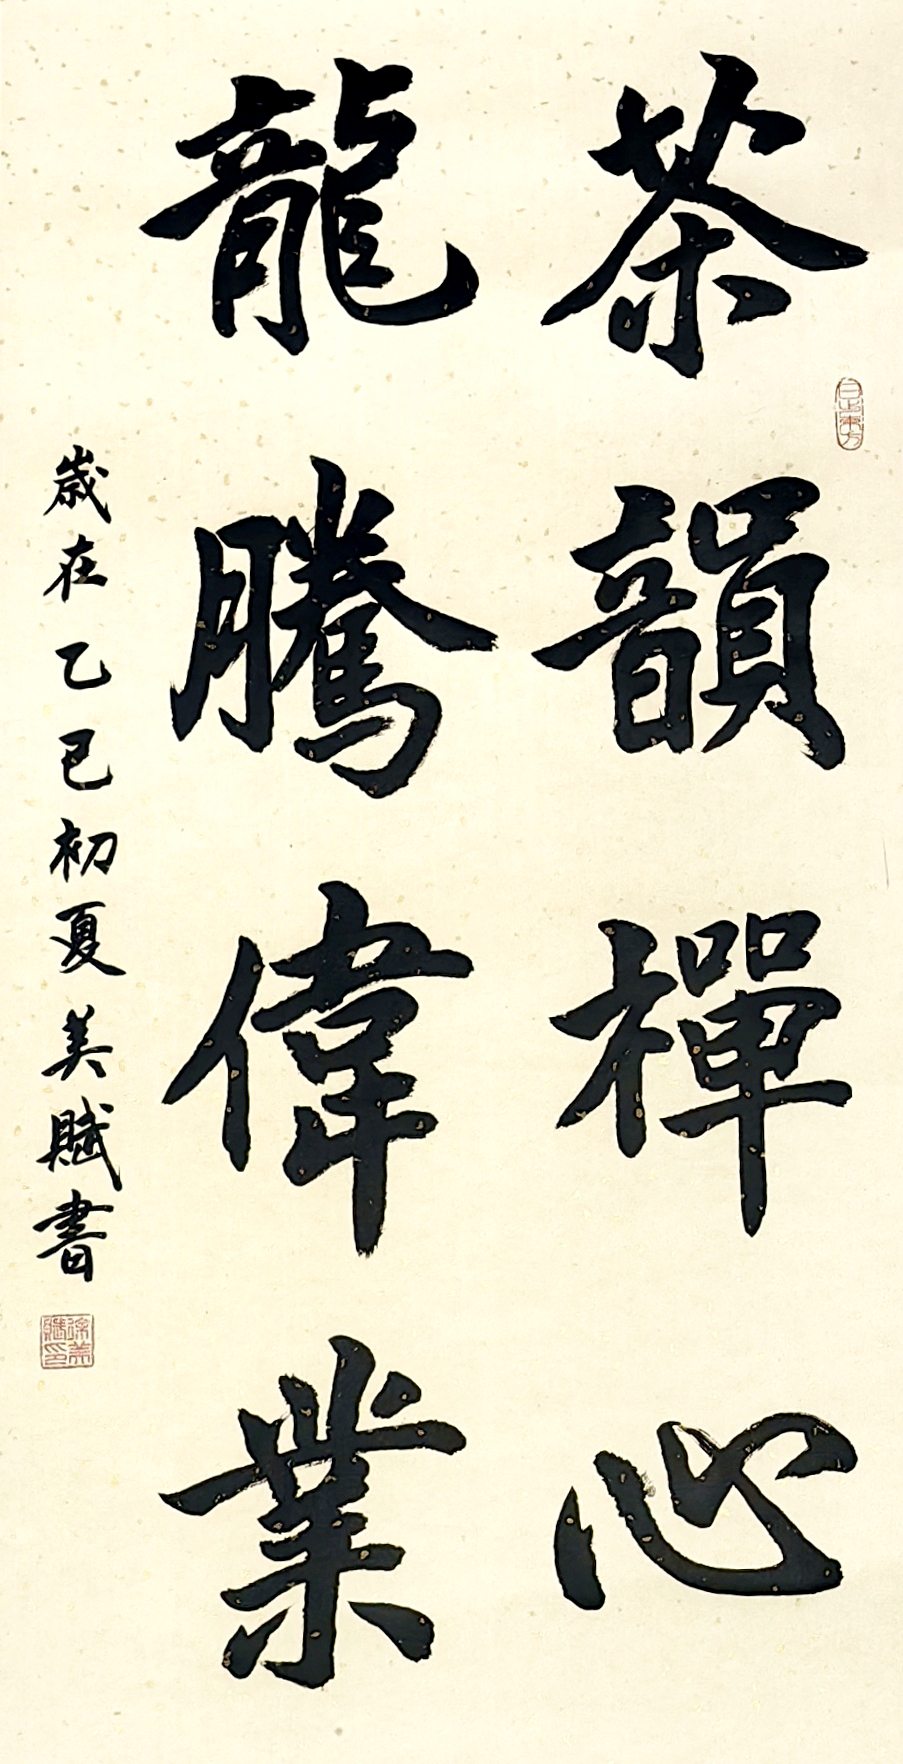 茶韻禪心
龍騰偉業
歲在乙巳初夏美賦書